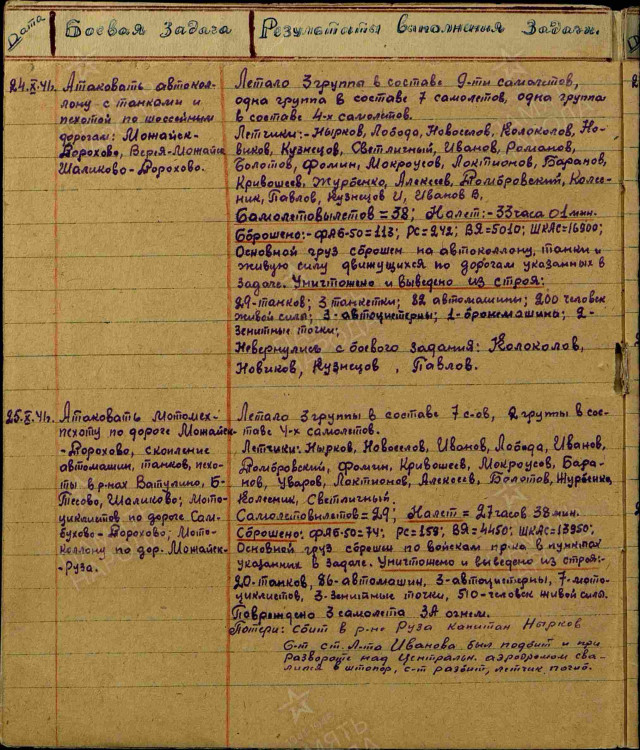 Дата
Боевая Задача
Результаты выполнения Задачи.
24.X.41г.
Атаковать автокол-
лону с танками и
пехотой по шоссейным
дорогам: Можайск-
Дорохово, Верея-Можайск
Шаликово-Дорохово.
Летало 3 группы в составе 9-ти самолетов,
одна группа в составе 7 самолетов, одна группа
в составе 4-х самолетов.
Летчики:- Нырков, Лобода, Новоселов, Колоколов, Но-
виков, Кузнецов, Светличный, Иванов, Романов,
Болотов, Фомин, Мокроусов, Локтионов, Баранов,
Кривошеев, Журбенко, Алексеев, Домбровский, Колес-
ник, Павлов, Кузнецов И, Иванов В,
Самолетовылетов = 38; Налет:- 33 часа 01 мин.
Сброшено:- ФАБ-50=113; РС=242; ВЯ=5010; ШКАС=16900;
Основной груз сброшен на автоколлону, танки и
живую силу движущихся по дорогам указанных в
задаче. Уничтожено и выведено из строя:
29-танков; 3 танкетки; 82 автомашины; 200 человек
живой силы; 3-автоцистерны; 1-бронемашина; 2-
зенитные точки;
Невернулись с боевого задания: Колоколов,
Новиков, Кузнецов , Павлов.
25.X.41г.
Атаковать мотомех-
пехоту по дороге Можайск
-Дорохово, скопление
автомашин, танков, пехо-
ты в р-нах Ватулино, Б-
Тесово, Шаликово; Мото-
циклистов по дороге Сам-
бухово-Дорохово; Мото-
коллону по дор. Можайск-
-Руза.
Летало 3 группы в составе 7 с-ов, 2 группы в сос-
таве 4-х самолетов.
Летчики: Нырков, Новоселов, Иванов, Лобода, Иванов,
Домбровский, Фомин, Кривошеев, Мокроусов, Бара-
нов, Уваров, Локтионов, Алексеев, Болотов, Журбенко,
Колесник, Светличный.
Самолетовылетов=29; Налет = 27 часов 38 мин.
Сброшено: ФАБ-50=74; РС=158; ВЯ=4450; ШКАС=13950;
Основной груз сброшен по войскам пр-ка в пунктах
указанных в задаче. Уничтожено и выведено из строя:-
20-танков, 86-автомашин, 3-автоцистерны, 7-мото-
циклистов, 3-зенитные точки, 510-человек живой силы.
Повреждено 3 самолета ЗА огнем.
Потери: сбит в р-не Руза капитан Нырков
С-т ст. Л-та Иванова был подбит и при
развороте над Центральн. аэродромом сва-
лился в штопор, с-т разбит, летчик погиб.